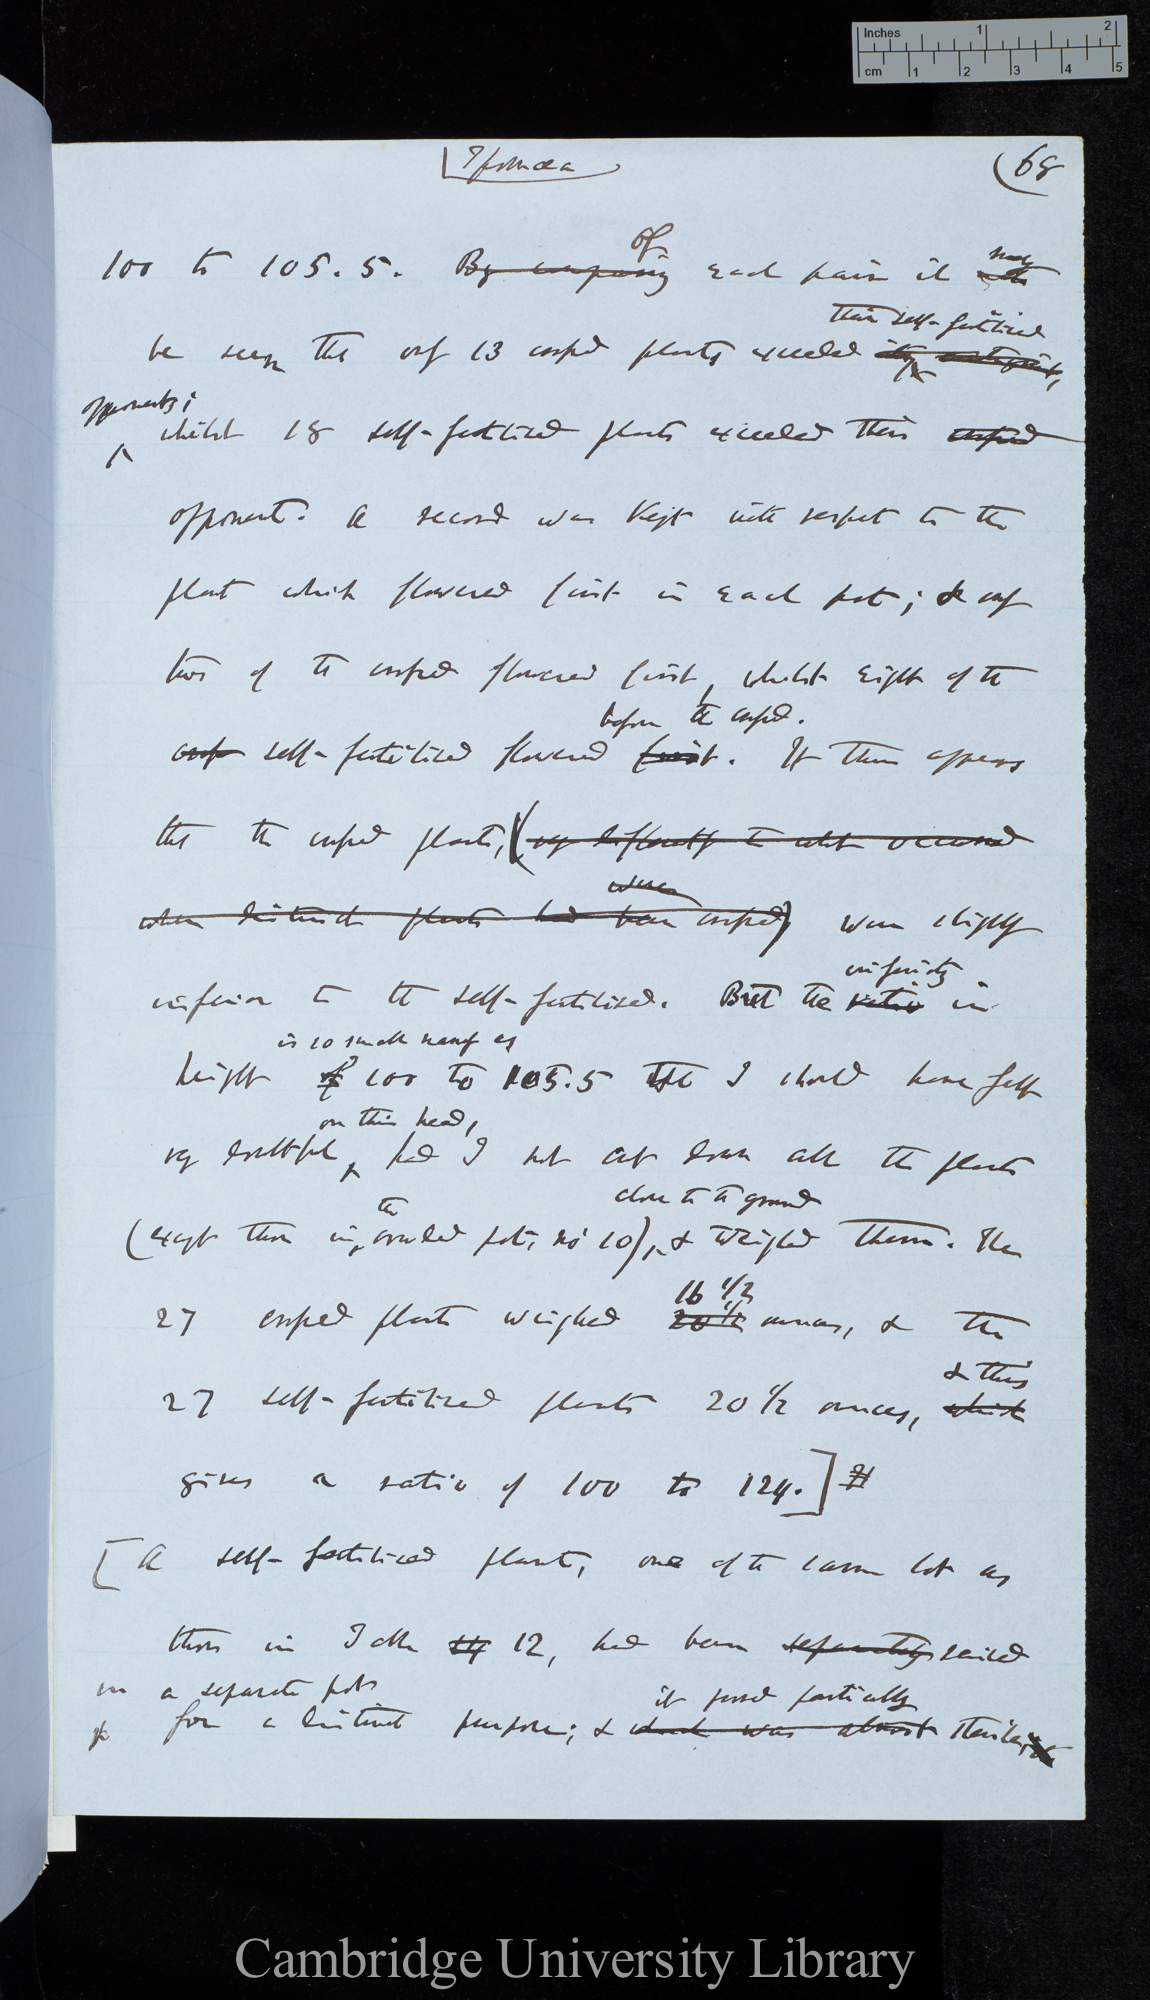 Inches 1 2
cm 1 2 3 4 5
Ipomœa
(68
of
may
100 to 105.5. By comparing each pair it
be seen that only 13 crossed plants exceeded
their self-fertilised
opponents;
whilst 18 self-fertilised plants exceeded their crossed
opponents. A record was kept with respect to the
plant which flowered first in each pot; & only
two of the crossed flowered first, whilst eight of the
before the crossed.
self-fertilised flowered first. It thus appears
that the crossed plants, (very differently to what occurred
were
when distinct plants had been crossed) were slightly
inferiority
inferior to the self-fertilised. But the ratio in
is so small namely as
height of 100 to 105.5 that I should have felt
on this head,
very doubtful, had I not cut down all the plants
the
close to the ground
(except those in crowded pot, no 10), & weighed them. The
16 1/2
27 crossed plants weighed 20 1/2 ounces, & the
& this
27 self-fertilised plants 20 1/2 ounces, which
gives a ratio of 100 to 124.]
[A self-fertilised plant, one of the same lot as
those in Table 12, had been separately raised
in a separate pot
it proved partially
for a distinct purpose; & which was almost sterile,
Cambridge University Library